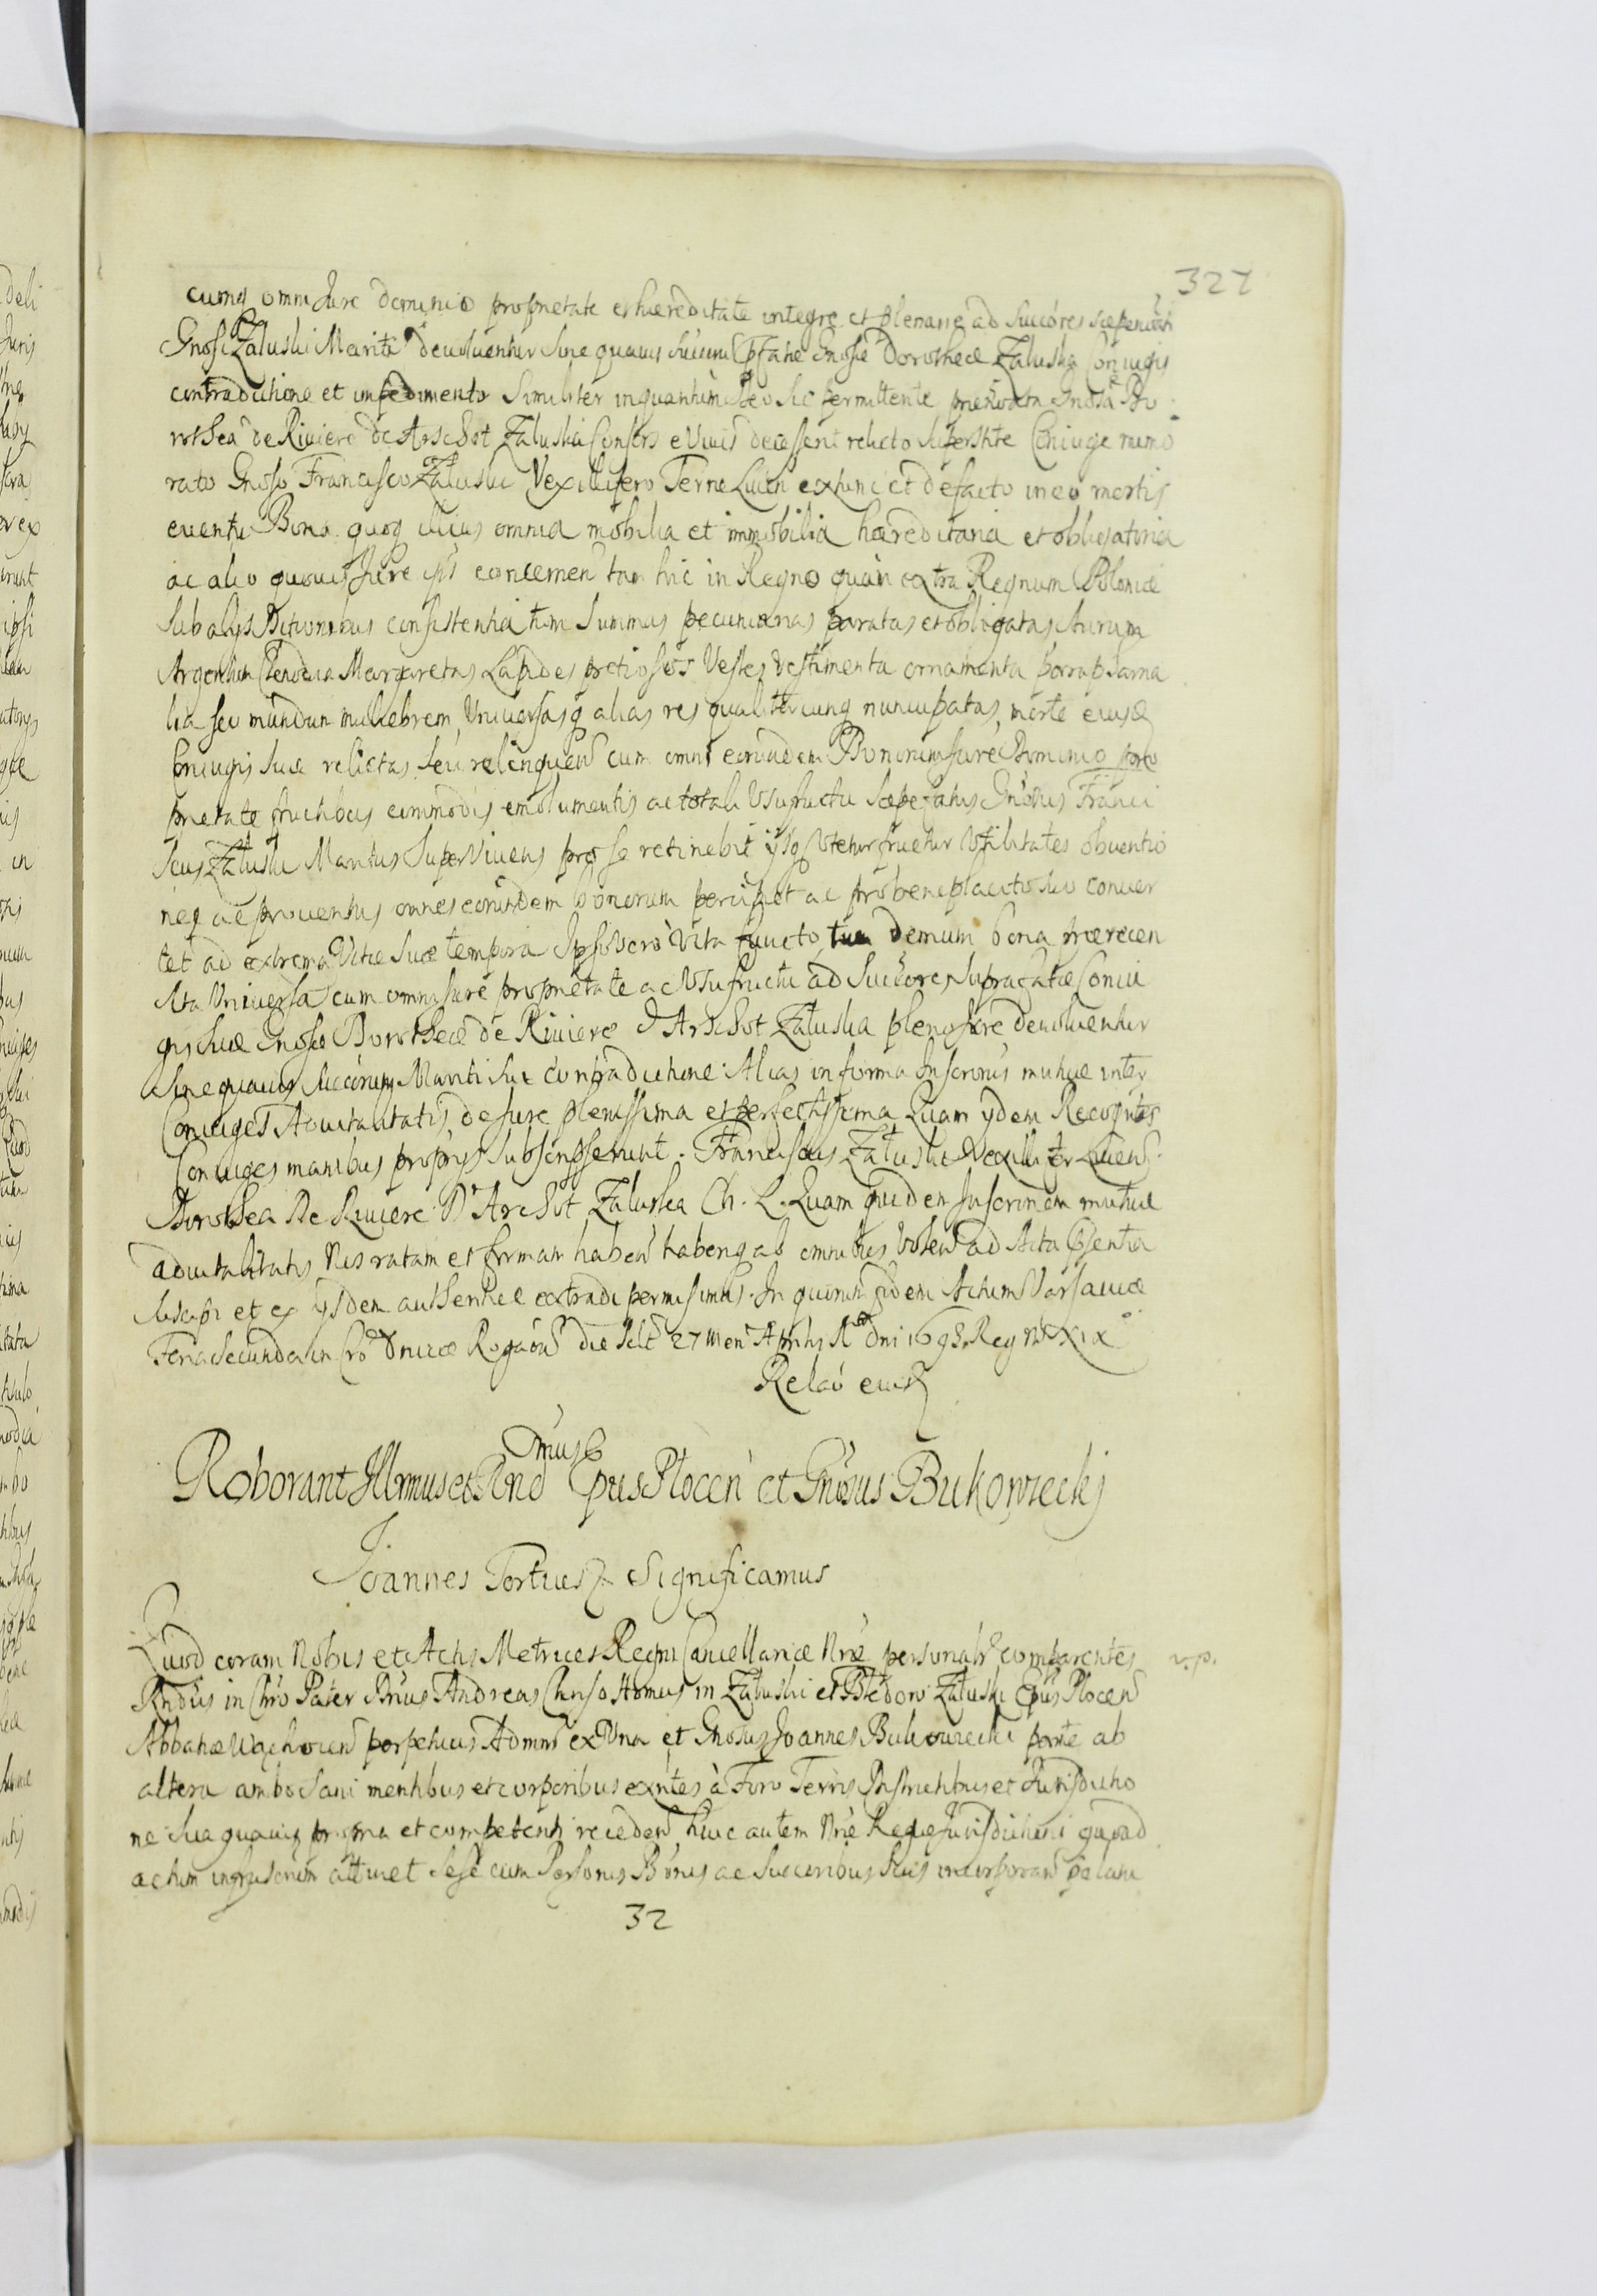 327
cumq omni Jure dominio proprietate et haereditate integre et plenarie ad Succóres saepenoti
Gnosi Załuski Mariti devoluentur Sine quavis Succorum pfatae Gnosae Dorotheae Załuska Coniugis
contradictione et impedimento Similiter inquantum Deo sic permittente praenotata Gnosa Do
rothea de Riviere de Archot Załuska Consors e Vivis decesserit relicto superstite Coniuge memo
rato Gnoso Francisco Załuski Vexillifero Terrae Livien ex hunc et de facto in eo mortis
eventu Bona quoq illius omnia mobilia et immobilia haereditaria et obligatoria
ac alio quovis Jure ipsi concernen tam hic in Regno quàm extra Regnum Poloniae
Sub alijs Ditionibus consistentia tum Summas pecuniarias paratas et obligatas Aurum
Argentum Clenodia Margaretas Lapides pretiosos Vestes Vestimenta ornamenta parapharna
lia seu mundum muliebrem Universasq alias res qualitercunq nuncupatas morte eiusd
Coniugis suae relictas seu relinquen cum omni eorundem Bonorum Jure Dominio pro
prietate fructibus commodis emolumentis ac totali Usufructu saepefatus Gnosus Franci
scus Załuski Maritus Supervivens pro se retinebit ijsq Utetur fruetur Utilitates obventio
nesq ac proventus omnes eorundem bonorum percipiet ac pro beneplacito suo conver
tet ad extrema Vitae suae tempora Ipso vero Vita functo tum demum bona praerecen
sita Universa cum omni Jure proprietate ac Usufructu ad Succores suprafatae Coniu
gis suae Gnosae Dorotheae de Riviere d'Archot Załuska pleno Jure devoluentur
Sine quavis Succorum Mariti sui contradictione Alias in forma Inscrionis mutuae inter
Coniuges Advitalitatis de Jure plenissima et perfectissima Quam ijdem Recogntes
Coniuges manibus proprijs subscripserunt. Franciscus Załuski Vexillifer Liviens
Dorothea De Riviere D'Archot Załuska Ch. L. Quam quidem Inscrionem mutuae
advitalitatis Nos ratam et firmam haben habenq ab omnibus Volen ad Acta Psentia
suscepi et ex ijsdem authentice extradi permisimus. In quorum fidem Actum Varsaviae
Feria Secunda in Cro Dnicae Rogaōn die Sclt 27 Men Aprilis Ao Dni 1693 Reg Nri XIX
Relaō eiusd
Roborant Illrmus et Rndmus Epus Plocen et Gnosus Bukowiecki
Joannes Tertius & Significamus
Quod coram Nobis et Actis Metrices Regni Cancellariae Nrae personalr comparentes
v.p.
Rndus in Chro Pater Dnus Andreas Chrisostomus in Załuski et Błędow Załuski Epus Plocen
Abbatiae Wąchocen perpetuus Admnr ex Una et Gnosus Joannes Bukowiecki parte ab
altera ambo sani mentibus et corporibus exntes à Foro Terris Districtibus et Jurisdictio
ne sua quavis propria et competenti receden huic autem Nrae Regiae Jurisdictioni quoad
actum infrascrim attinet sese cum Personis Bonis ac Succoribus suis incorporan palam
32